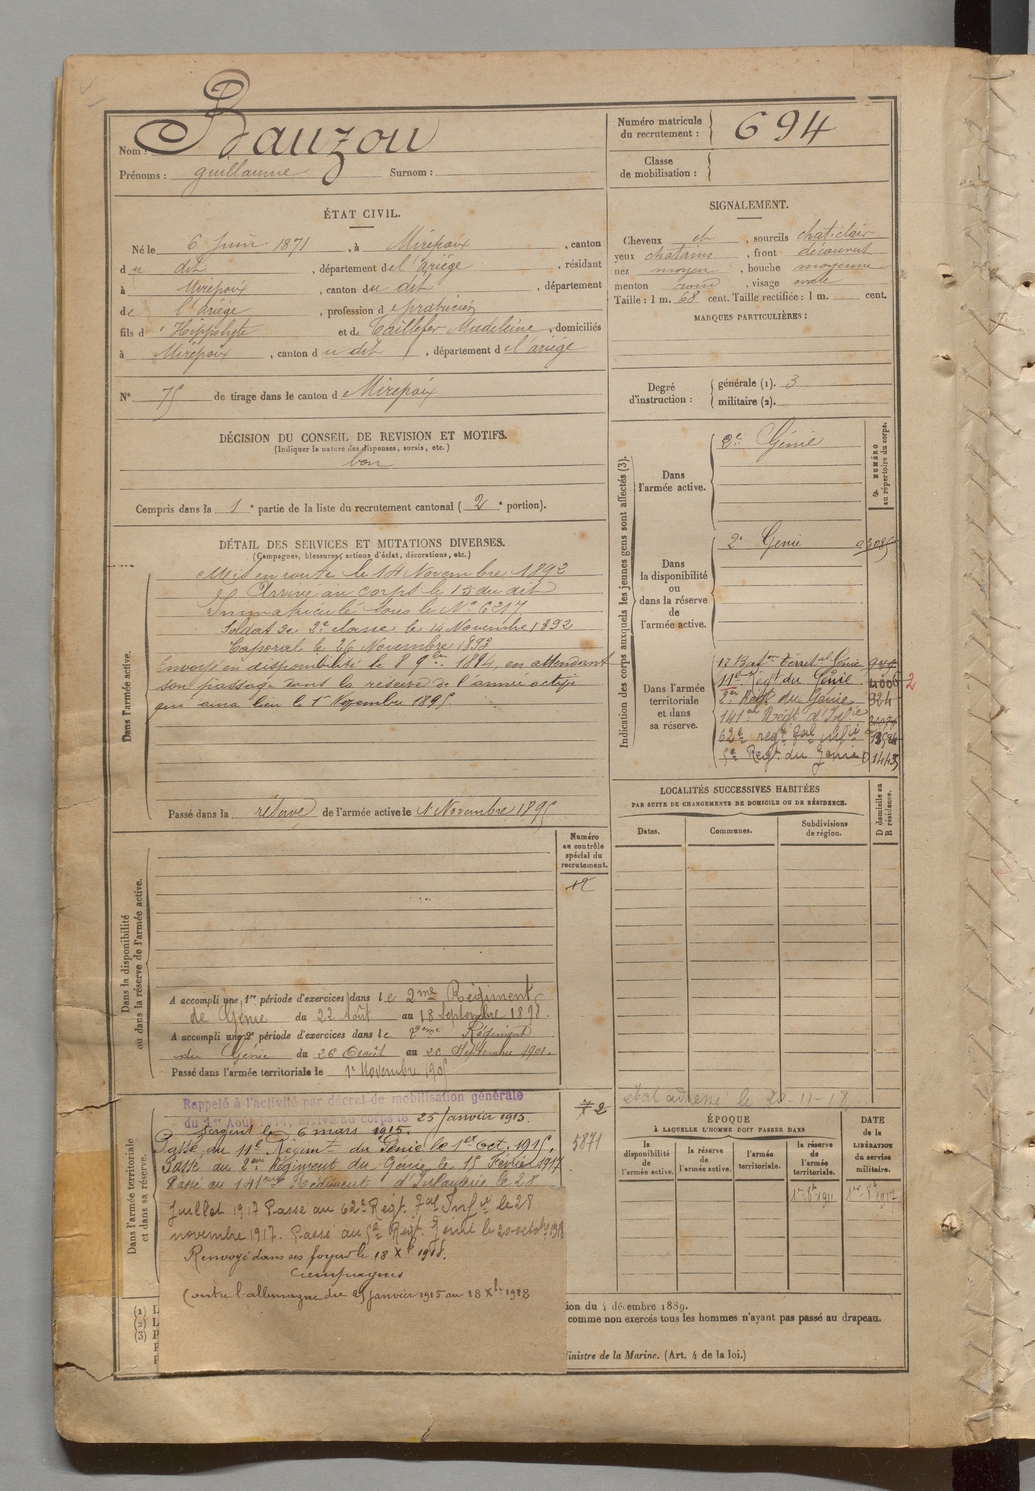 Nom : Bauzou
Prénoms : guillaume Surnom :
Numéro matricule du recrutement : 694
Classe de mobilisation :
ÉTAT CIVIL.
Né le 6 Juin 1871, à Mirepoix, canton
du dit, département de l'Ariége, résidant
à Mirepoix, canton du dit, département
de l'Ariége, profession de praticien
fils d' Hippolyte et de Taillefer Madeleine, domiciliés
à Mirepoix, canton du dit, département de l'ariège
N° 75 de tirage dans le canton de Mirepoix
DÉCISION DU CONSEIL DE REVISION ET MOTIFS.
(Indiquer la nature des dispenses, sursis, etc.)
bon
Compris dans la 1e partie de la liste du recrutement cantonal (2e portion).
SIGNALEMENT.
Cheveux et, sourcils chat. clair
yeux chatains, front découvert
nez moyen, bouche moyenne
menton rond, visage ovale
Taille : 1 m. 68 cent. Taille rectifiée : 1 m. cent.
MARQUES PARTICULIÈRES :
Degré d'instruction : générale (1). 3
militaire (2).
DÉTAIL DES SERVICES ET MUTATIONS DIVERSES.
(Campagnes, blessures, actions d'éclat, décorations, etc.)
Dans l'armée active.
Mis en route le 14 Novembre 1892
Arrivé au corps le 15 du dit
Immatriculé sous le N° 6217
Soldat de 2e classe le 14 Novembre 1892
Caporal le 26 Novembre 1893
Envoyé en disponibilité le 8 9bre 1894, en attendant
son passage dans la réserve de l'armée active
qui aura lieu le 1er Novembre 1895
Passé dans la réserve de l'armée active le 1er Novembre 1895
Indication des corps auxquels les jeunes gens sont affectés (3).
NUMÉRO au répertoire du corps.
Dans l'armée active.
2e Génie
Dans la disponibilité ou dans la réserve de l'armée active.
2e Génie
Dans l'armée territoriale et dans sa réserve.
17 Baton Territal Génie
11e Régt du Génie 2
2e Régt du Génie 324
141e Régt d'Infie
62e régt
5e Regt du Génie 1443
LOCALITÉS SUCCESSIVES HABITÉES
PAR SUITE DE CHANGEMENTS DE DOMICILE OU DE RÉSIDENCE.
Dates. Communes. Subdivisions de région. D domicile ou R résidence.
Numéro au contrôle spécial du recrutement.
Dans la disponibilité ou dans la réserve de l'armée active.
A accompli une 1re période d'exercices dans le 2me Régiment
de Génie du 22 Août au 18 septembre 1898.
A accompli une 2e période d'exercices dans le 2eme Régiment
du Génie du 26 Août au 22 Septembre 1901.
Passé dans l'armée territoriale le 1er Novembre 1905
Dans l'armée territoriale et dans sa réserve.
Rappelé à l'activité par décret de mobilisation générale
du 1er Août 1914, arrivé au corps le 25 Janvier 1915.
Sergent le 6 mars 1915.
Passé au 11e Régiment du Génie le 1er Oct. 1915.
Passé au 2eme Régiment du Génie le 15 Février 1917.
Passé au 141eme Régiment d'Infanterie le 28
Juillet 1917 Passé au 62e Régt. Inf le 28
novembre 1917. Passé au 5e Régt. Génie le 20 octobre 1918
Renvoyé dans ses foyers le 18 Xbre 1918.
Campagnes
Contre l'allemagne du 25 janvier 1915 au 18 Xbre 1918
5871
état adressé le 20-11-18
ÉPOQUE
À LAQUELLE L'HOMME DOIT PASSER DANS
la disponibilité de l'armée active. la réserve de l'armée active. l'armée territoriale. la réserve de l'armée territoriale.
DATE de la LIBÉRATION du service militaire.
1er 8bre 1911 1er 8bre 1917
(1) (2) (3)
ion du 4 décembre 1889.
comme non exercés tous les hommes n'ayant pas passé au drapeau.
Ministre de la Marine. (Art. 4 de la loi.)